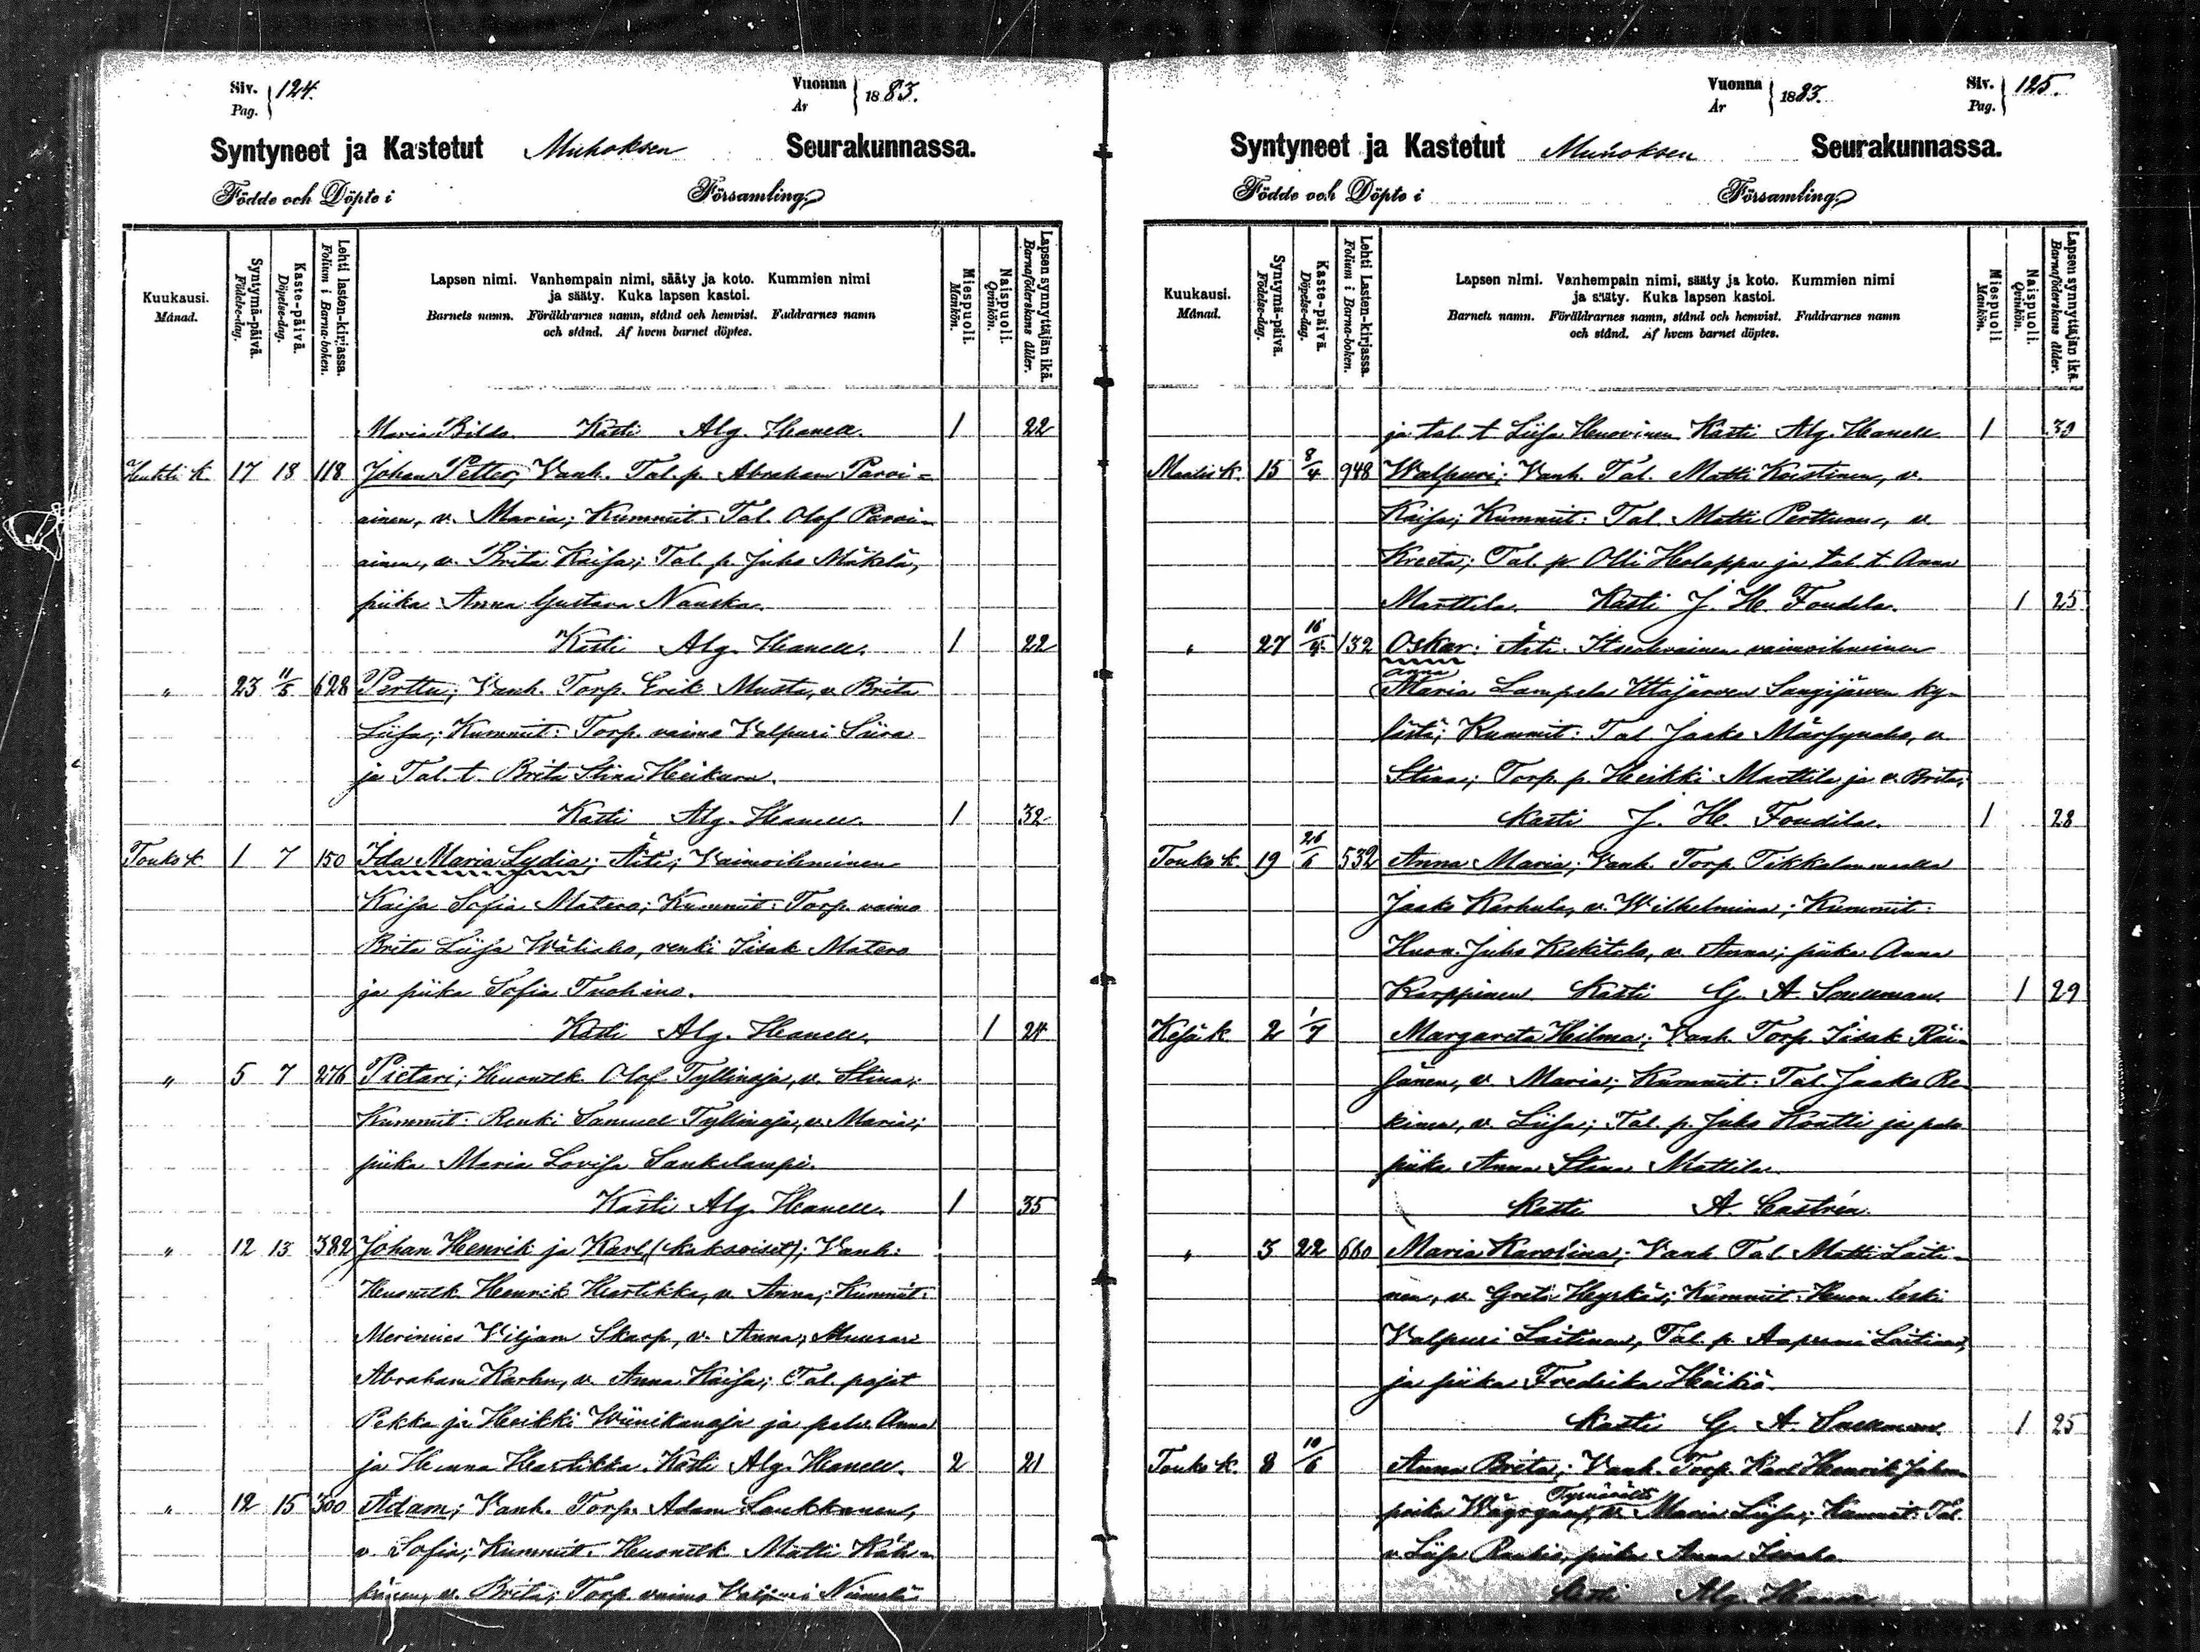 Siv. Pag. 124.
Vuonna År 1883.
Syntyneet ja Kastetut Muhoksen Seurakunnassa.
Födde och Döpte i Församling.
Kuukausi. Månad.
Syntymä-päivä. Födelse-dag.
Kaste-päivä. Döpelse-dag.
Lehti lasten-kirjassa. Folium i Barna-boken.
Lapsen nimi. Vanhempain nimi, sääty ja koto. Kummien nimi
ja sääty. Kuka lapsen kastoi.
Barnets namn. Föräldrarnes namn, stånd och hemvist. Faddrarnes namn
och stånd. Af hvem barnet döptes.
Miespuoli. Mankön.
Naispuoli. Qvinkön.
Lapsen synnyttäjän ikä. Barnaföderskans ålder.
Maria Kasti Alg. Hanell. 1 22
Huhti k. 17 18 118 Johan Petter; Vanh. Tal. p. Abraham Parvi-
ainen, v. Maria; Kummit: Tal. Olof Parvi-
ainen, v. Brita Kaisa; Tal. p. Juho Mäkelä,
piika Anna Gustava Nauska.
Kasti Alg. Hanell. 1 22
" 23 11/5 628 Perttu; Vanh. Torp. Erik Musta, v. Brita
Liisa; Kummit: Torp. vaimo Valpuri Siira
ja Tal. t. Brita Stina Heikura.
Kasti Alg. Hanell. 1 32
Touko k. 1 7 150 Ida Maria Lydia; Äiti; Vaimoihminen
Kaisa Sofia Matero; Kummit: Torp. vaimo
Brita Liisa Wäliaho, renki Iisak Matero
ja piika Sofia Tuohino.
Kasti Alg. Hanell. 1 24
" 5 7 276 Pietari; Huonelk. Olof Tyllinoja, v. Stina;
Kummit: Renki Samuel Tyllinoja, v. Maria;
piika Maria Lovisa Sankilampi.
Kasti Alg. Hanell. 1 35
" 12 13 382 Johan Henrik ja Karl (kaksoiset); Vanh:
Huonelk. Henrik Hartikka, v. Anna; Kummit:
Merimies Viljam Skarp, v. Anna; Muurari
Abraham Karhu, v. Anna Kaisa; Tal. pojat
Pekka ja Heikki Wiinikangas ja palv. Anna
ja Henna Hartikka. Kasti Alg. Hanell. 2 21
" 12 15 300 Adam; Vanh. Torp. Adam Laukkanen,
v. Sofia; Kummit: Huonelk. Matti Käh-
könen, v. Brita; Torp. vaimo Valpuri Niemelä
Vuonna År 1883.
Siv. Pag. 125.
Syntyneet ja Kastetut Muhoksen Seurakunnassa.
Födde och Döpte i Församling.
Kuukausi. Månad.
Syntymä-päivä. Födelse-dag.
Kaste-päivä. Döpelse-dag.
Lehti Lasten-kirjassa. Folium i Barna-boken.
Lapsen nimi. Vanhempain nimi, sääty ja koto. Kummien nimi
ja sääty. Kuka lapsen kastoi.
Barnets namn. Föräldrarnes namn, stånd och hemvist. Faddrarnes namn
och stånd. Af hvem barnet döptes.
Miespuoli. Mankön.
Naispuoli. Qvinkön.
Lapsen synnyttäjän ikä. Barnaföderskans ålder.
ja tal. t. Liisa Huovinen Kasti Alg. Hanell 1 30
Maalis k. 15 8/4 948 Walpuri; Vanh. Tal. Matti Koistinen, v.
Kaisa; Kummit: Tal. Matti Perttunen, v.
Kreeta; Tal. p. Olli Holappa ja tal. t. Anna
Marttila. Kasti J. H. Foudila. 1 25
" 27 132 Oskar: Äiti. Itsellinen vaimoihminen
Anna
Maria Lampela Utajärven Sangijärven ky-
lästä; Kummit: Tal. Jaako v.
Stina; Torp. p. Heikki Marttila ja v. Brita;
Kasti J. H. Foudila. 1 28
Touko k. 19 26/6 532 Anna Maria; Vanh. Torp. Tikkalan maalla
Jaako Karhula, v. Wilhelmina; Kummit:
Huon. Juho Keskitalo, v. Anna; piika Anna
Karppinen Kasti G. A. Snellman. 1 29
Kesä k. 2 1/7 Margareta Hilma; Vanh. Torp. Iisak Räi-
sänen, v. Maria; Kummit: Tal. Jaako Re-
kinen, v. Liisa; Tal. p. Juho Kontti ja palv.
piika Anna Stina Mattila.
Kasti A. Castrén.
" 3 22 660 Maria Karolina; Vanh. Tal. Matti Laiti-
nen, v. Greta Hyrkäs; Kummit: Huon. leski
Valpuri Laitinen, Tal. p. Aapeli Laitinen,
ja piika Fredrika Heikiö.
Kasti G. A. Snellman. 1 25
Touko k. 8 10/6 Anna Brita; Vanh. Torp. Karl Henrik Juhon
Tyrnävältä
poika v. Maria Liisa; Kummit: Tal.
v. Liisa piika Anna
Kasti Alg. Hanell